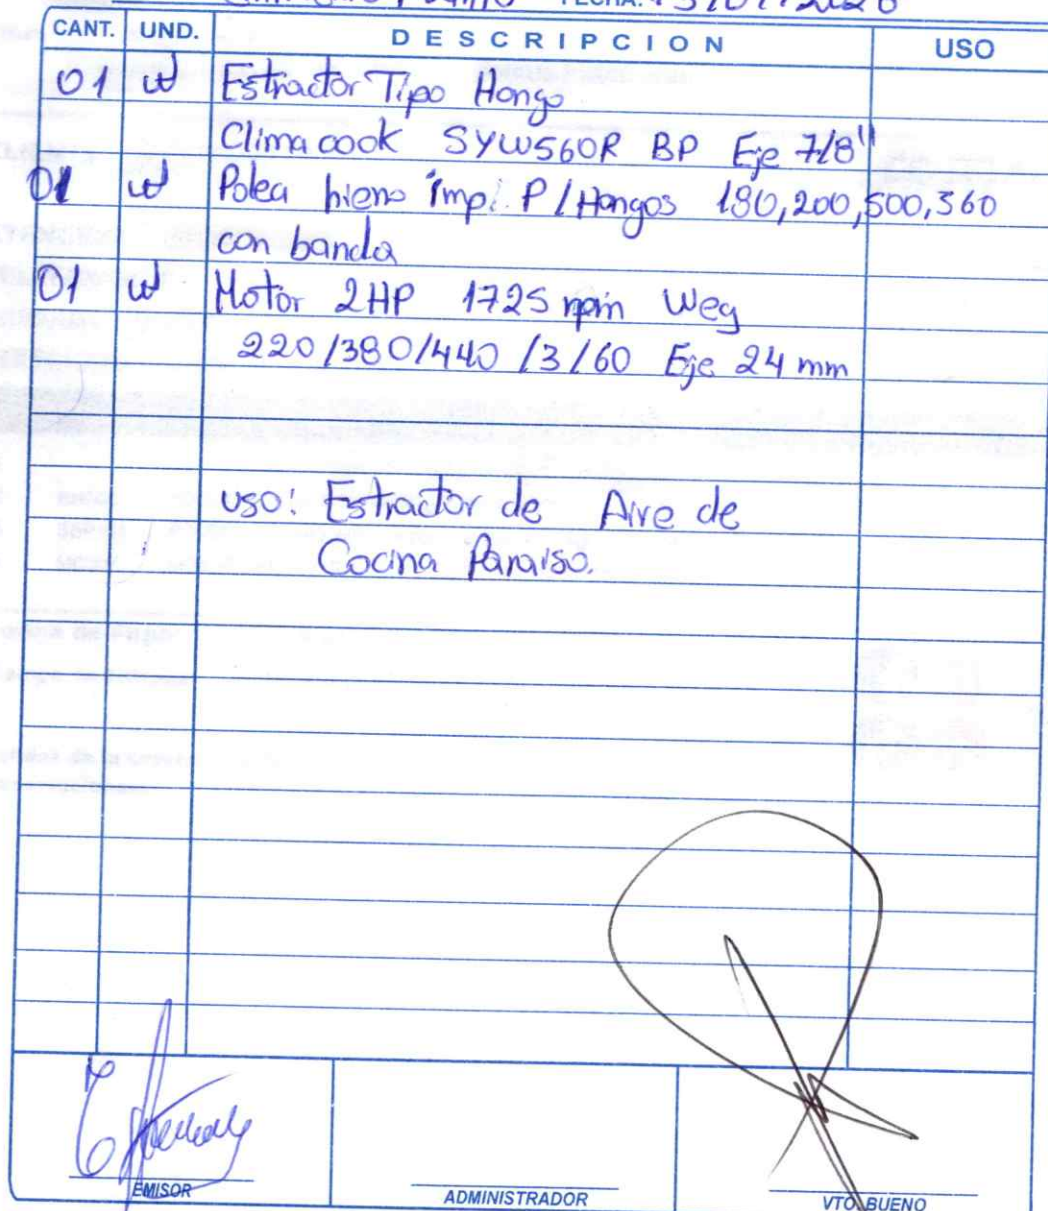 FECHA:
CANT. UND. DESCRIPCION USO
01 ud Estractor Tipo Hongo
Clima cook SYW560R BP Eje 7/8"
01 ud Polea hierro imp. P/Hongos 180,200,500,360
con banda
01 ud Motor 2HP 1725 rpm Weg
220/380/440/3/60 Eje 24 mm
uso: Estractor de Aire de
Cocina Paraiso.
EMISOR ADMINISTRADOR VTO. BUENO